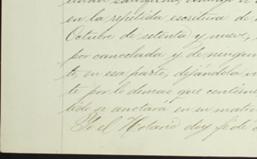 en la repetida escritura de
Octubre de setenta y nueve,
por cancelada y de ningun
to, en esa parte, dejándola
te por lo demas que contiene
tido se anotará en su matri
Yo el Notario doy fé de